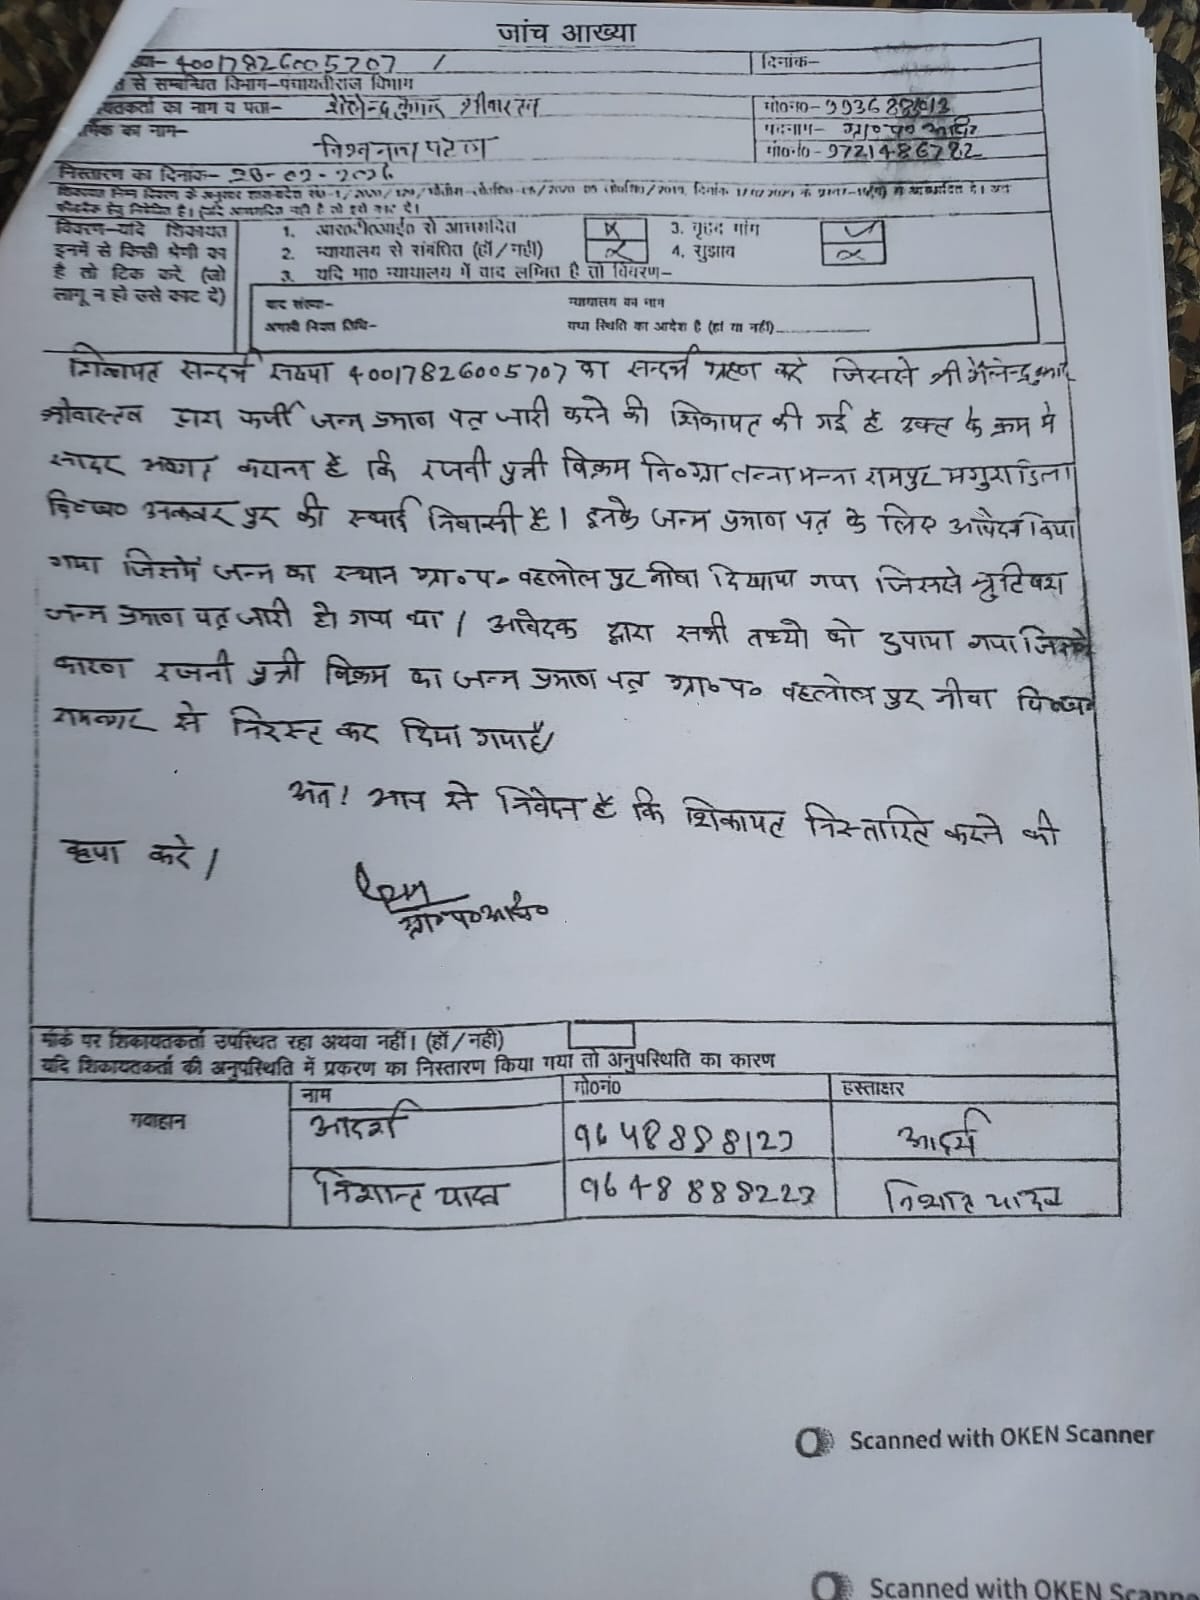 जांच आख्या
ख्या- 40017826005707 /
दिनांक-
त से सम्बन्धित विभाग-पंचायतीराज विभाग
यतकर्ता का नाम व पता- शैलेन्द्र कुमार श्रीवास्तव
मो०नं०-
र्मिक का नाम-
पदनाम- ग्रा० प०
पटेल
मो०नं०- 9721486782
निस्तारण का दिनांक-
विवरण-यदि शिकायत
इनमें से किसी श्रेणी का
है तो टिक करे (जो
लागू न हो उसे काट दे)
1. आर०टी०आई० से आच्छादित
3. वृहद मांग
2. न्यायालय से संबंधित (हॉ/नही)
4. सुझाव
3. यदि मा० न्यायालय में वाद लम्बित है तो विवरण-
वाद संख्या-
न्यायालय का नाम
अगली नियत तिथि-
यथा स्थिति का आदेश है (हां या नही)
शिकायत सन्दर्भ संख्या 40017826005707 का सन्दर्भ ग्रहण करे जिससे श्री शैलेन्द्र कुमार
श्रीवास्तव द्वारा फर्जी जन्म प्रमाण पत्र जारी करने की शिकायत की गई है उक्त के क्रम मे
सादर अवगत कराना है कि रजनी पुत्री विक्रम नि०ग्रा रामपुर
वि०ख० अकबर पुर की स्थाई निवासी है। इनके जन्म प्रमाण पत्र के लिए आवेदन किया
गया जिसमें जन्म का स्थान ग्रा०प० वहलोल पुर नीवा दिखाया गया जिससे त्रुटिवश
जन्म प्रमाण पत्र जारी हो गया था / आवेदक द्वारा सभी तथ्यो को छुपाया गया जिसके
कारण रजनी पुत्री विक्रम का जन्म प्रमाण पत्र ग्रा०प० वहलोल पुर नीवा वि०ख०
रामनगर से निरस्त कर दिया गया है/
अतः आप से निवेदन है कि शिकायत निस्तारित करने की
कृपा करे /
ग्रा०प०अधि०
मौके पर शिकायतकर्ता उपस्थित रहा अथवा नहीं। (हॉ/नही)
यदि शिकायतकर्ता की अनुपस्थिति में प्रकरण का निस्तारण किया गया तो अनुपस्थिति का कारण
गवाहान
नाम
मो०नं०
हस्ताक्षर
आदर्श
9648888123
आदर्श
निशान्त यादव
9648888223
निशांत यादव
Scanned with OKEN Scanner
Scanned with OKEN Scanne